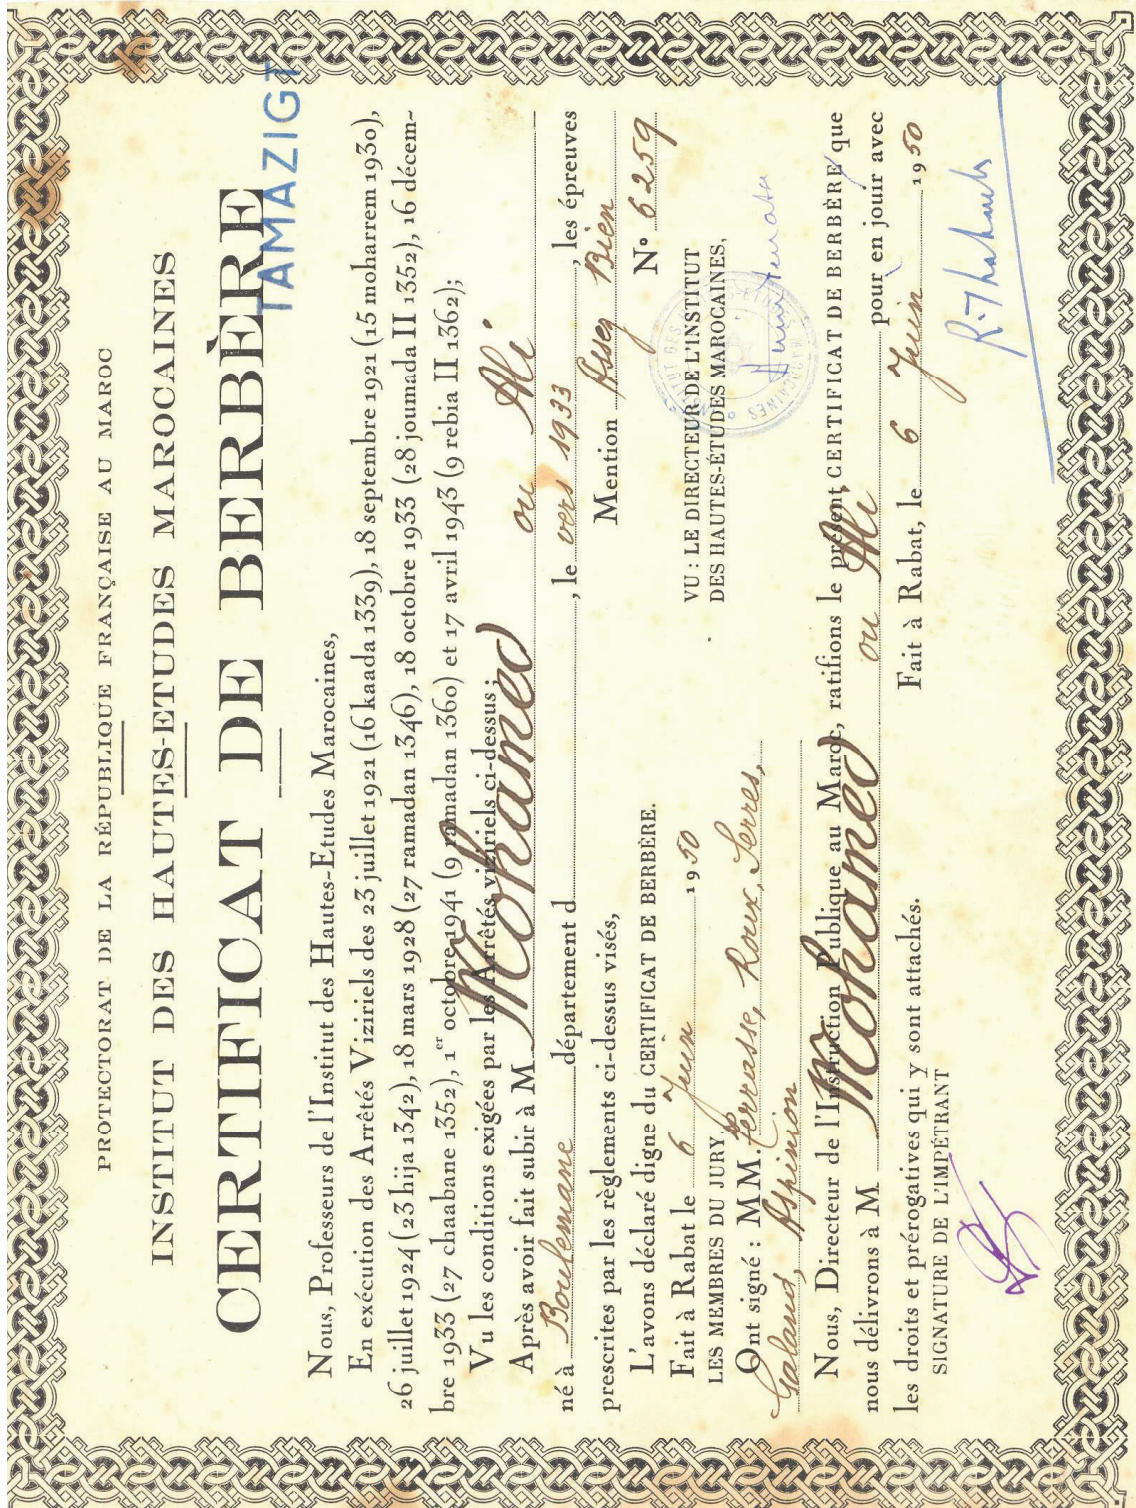 PROTECTORAT DE LA RÉPUBLIQUE FRANÇAISE AU MAROC
INSTITUT DES HAUTES-ETUDES MAROCAINES
CERTIFICAT DE BERBÈRE
TAMAZIGT
Nous, Professeurs de l'Institut des Hautes-Etudes Marocaines,
En exécution des Arrêtés Viziriels des 23 juillet 1921 (16 kaada 1339), 18 septembre 1921 (15 moharrem 1930),
26 juillet 1924 (23 hija 1342), 18 mars 1928 (27 ramadan 1346), 18 octobre 1933 (28 joumada II 1352), 16 décem-
bre 1933 (27 chaabane 1352), 1er octobre 1941 (9 ramadan 1360) et 17 avril 1943 (9 rebia II 1362);
Vu les conditions exigées par les Arrêtés viziriels ci-dessus;
Après avoir fait subir à M Mohamed ou Ali
né à Boulemane département d , le vers 1933 , les épreuves
prescrites par les règlements ci-dessus visés, Mention Assez Bien
L'avons déclaré digne du CERTIFICAT DE BERBÈRE. N° 6259
Fait à Rabat le 6 Juin 1950
VU : LE DIRECTEUR DE L'INSTITUT
DES HAUTES-ÉTUDES MAROCAINES,
LES MEMBRES DU JURY
Ont signé : MM. Terrasse, Roux, Serres,
Galand, Aspinion
Nous, Directeur de l'Instruction Publique au Maroc, ratifions le présent CERTIFICAT DE BERBÈRE que
nous délivrons à M Mohamed ou Ali pour en jouir avec
les droits et prérogatives qui y sont attachés. Fait à Rabat, le 6 Juin 1950
SIGNATURE DE L'IMPÉTRANT